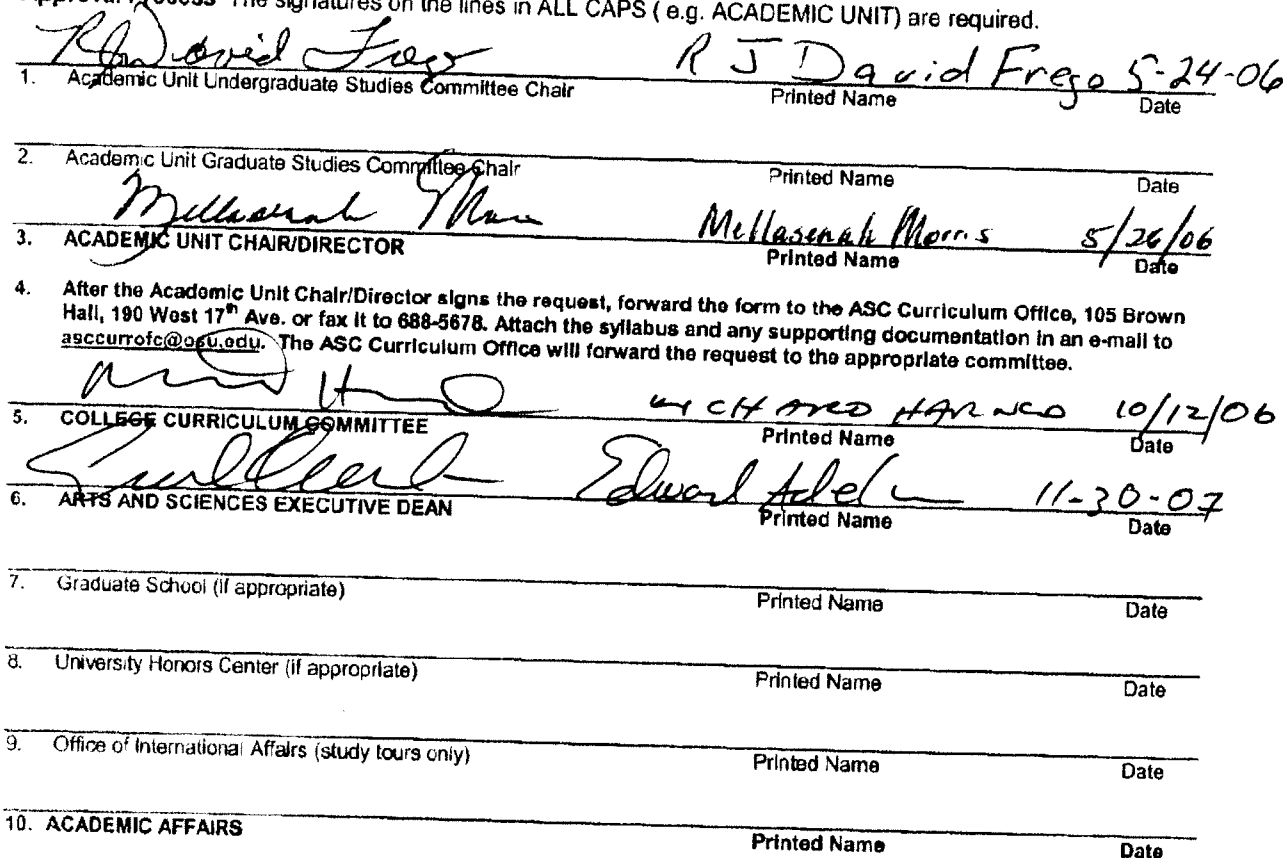 Approval Process The signatures on the lines in ALL CAPS ( e.g. ACADEMIC UNIT) are required.
R J David Frego R J David Frego 5-24-06
1. Academic Unit Undergraduate Studies Committee Chair Printed Name Date
2. Academic Unit Graduate Studies Committee Chair Printed Name Date
Mellasenah Morris 5/26/06
3. ACADEMIC UNIT CHAIR/DIRECTOR Printed Name Date
4. After the Academic Unit Chair/Director signs the request, forward the form to the ASC Curriculum Office, 105 Brown
Hall, 190 West 17th Ave. or fax it to 688-5678. Attach the syllabus and any supporting documentation in an e-mail to
asccurrofc@osu.edu. The ASC Curriculum Office will forward the request to the appropriate committee.
10/12/06
5. COLLEGE CURRICULUM COMMITTEE Printed Name Date
Edward 11-30-07
6. ARTS AND SCIENCES EXECUTIVE DEAN Printed Name Date
7. Graduate School (if appropriate) Printed Name Date
8. University Honors Center (if appropriate) Printed Name Date
9. Office of International Affairs (study tours only) Printed Name Date
10. ACADEMIC AFFAIRS Printed Name Date